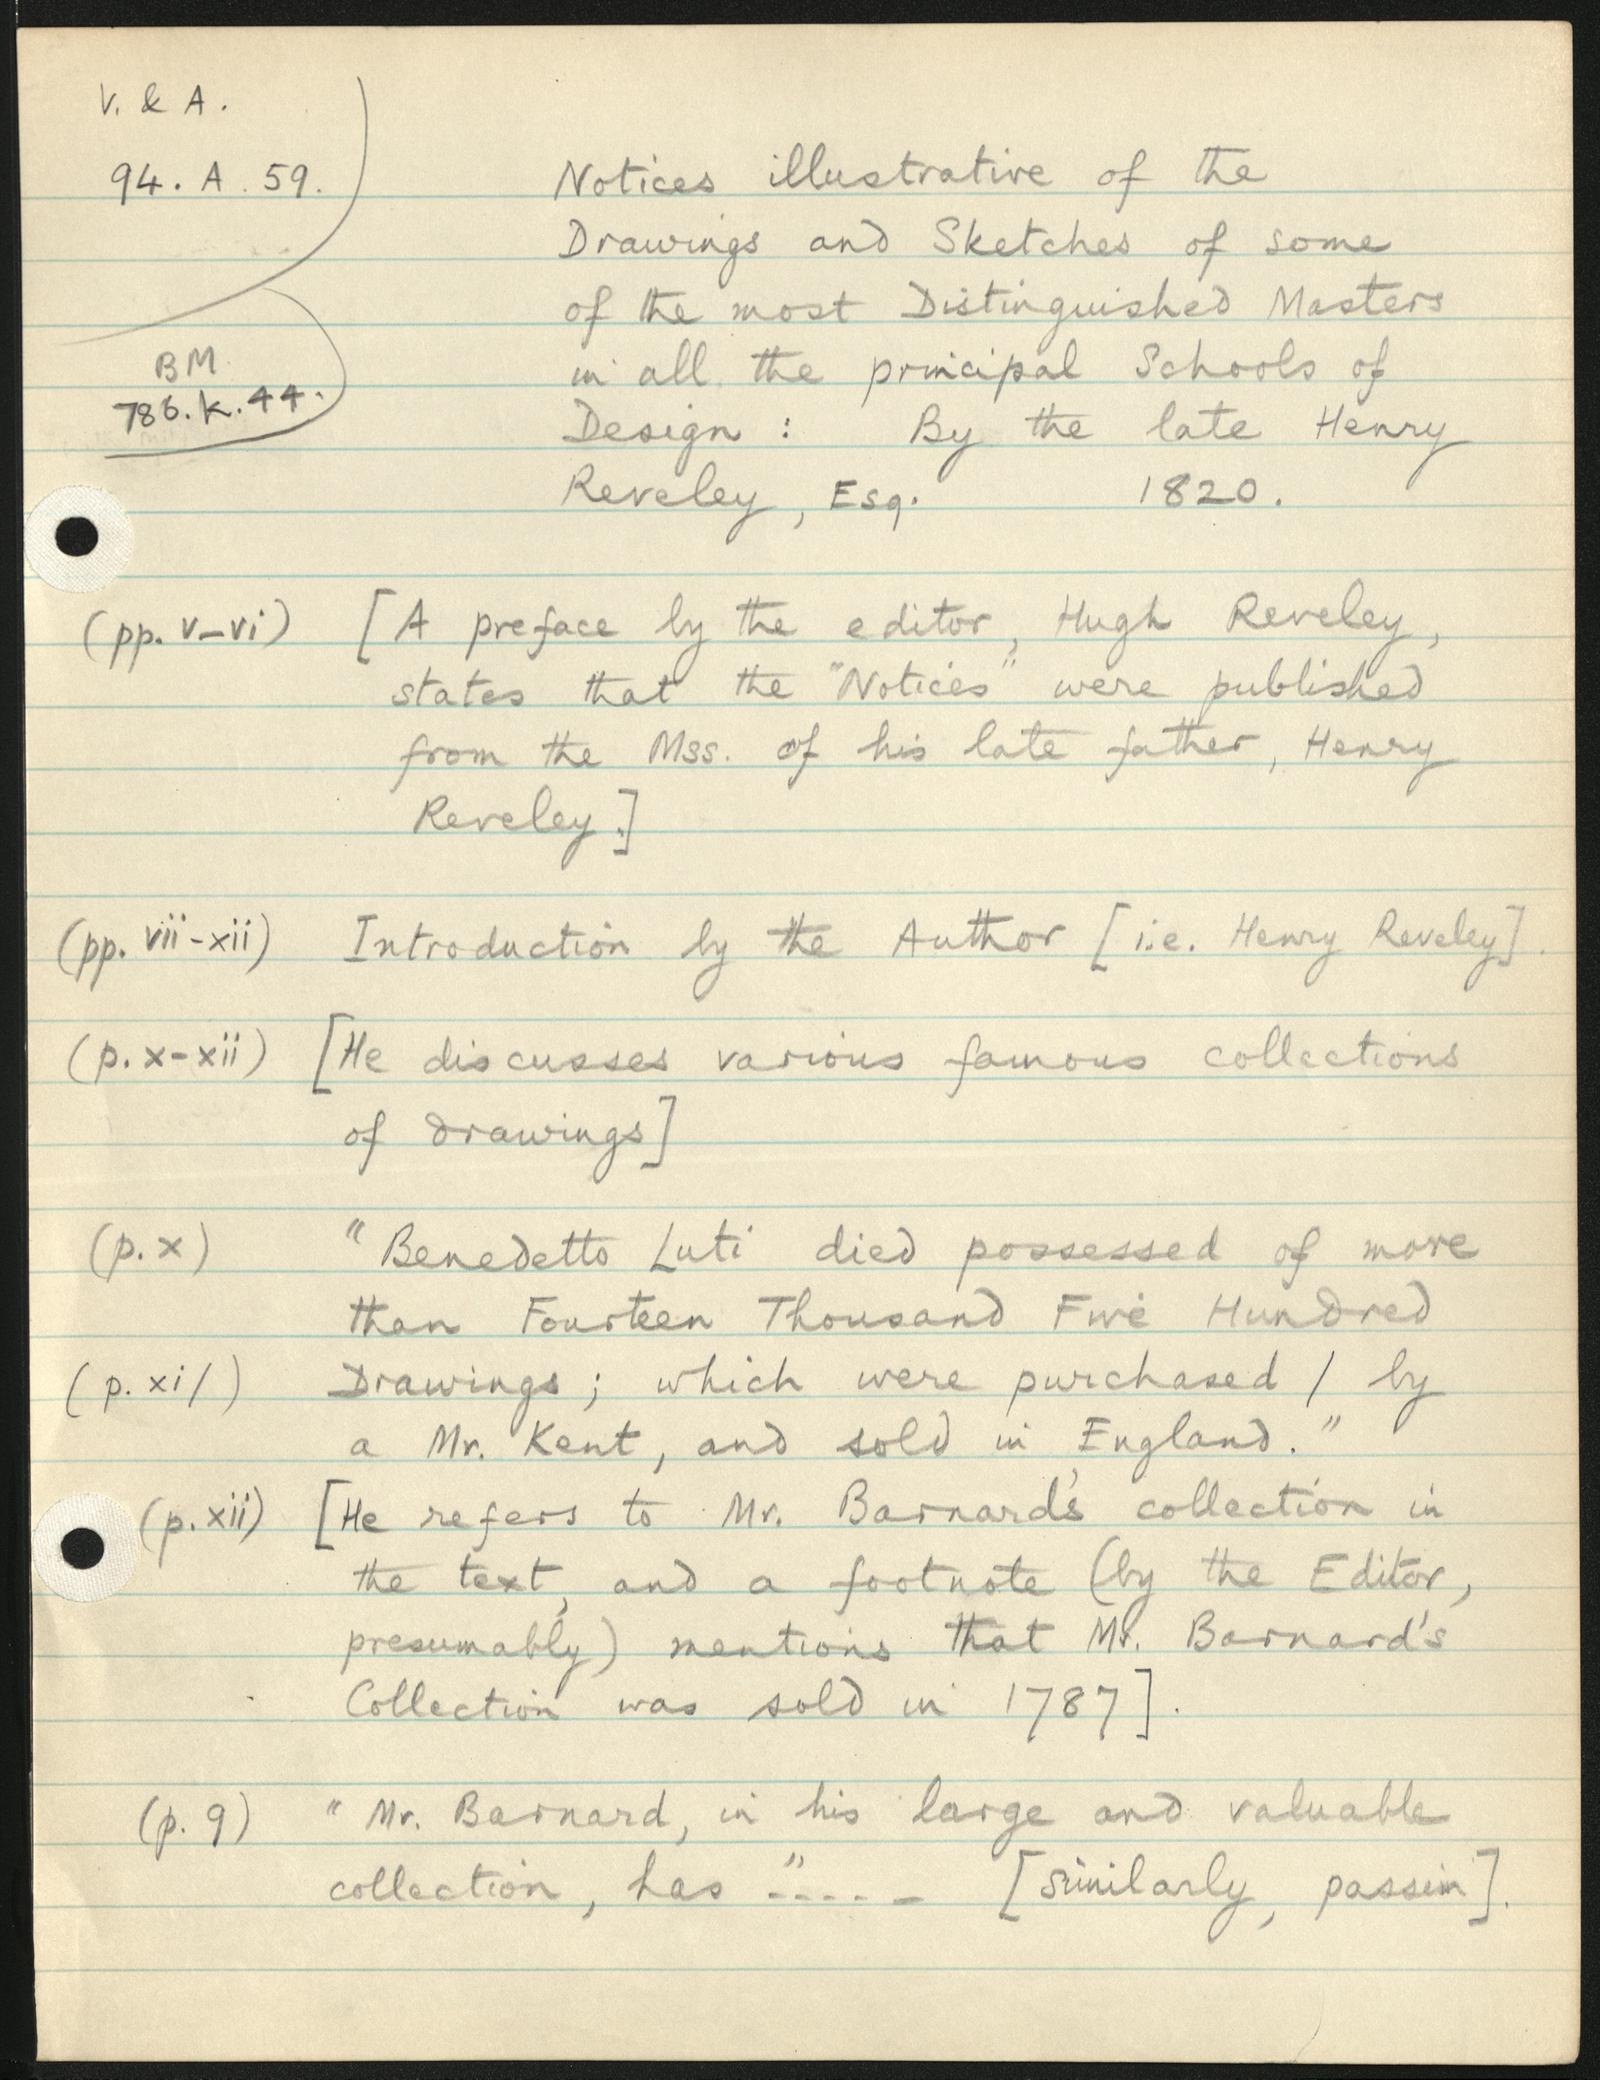 V. & A.
94. A. 59.
BM
786.k.44.
Notices illustrative of the
Drawings and Sketches of some
of the most Distinguished Masters
in all the principal Schools of
Design : By the late Henry
Reveley, Esq. 1820.
(pp. v-vi) [A preface by the editor, Hugh Reveley,
states that the "Notices" were published
from the Mss. of his late father, Henry
Reveley.]
(pp. vii-xii) Introduction by the Author [i.e. Henry Reveley].
(p. x-xii) [He discusses various famous collections
of drawings]
(p. x) "Benedetto Luti died possessed of more
than Fourteen Thousand Five Hundred
(p. xi/) Drawings; which were purchased / by
a Mr. Kent, and sold in England."
(p. xii) [He refers to Mr. Barnard's collection in
the text, and a footnote (by the Editor,
presumably) mentions that Mr. Barnard's
Collection was sold in 1787].
(p. 9) "Mr. Barnard, in his large and valuable
collection, has "----- [similarly, passim].